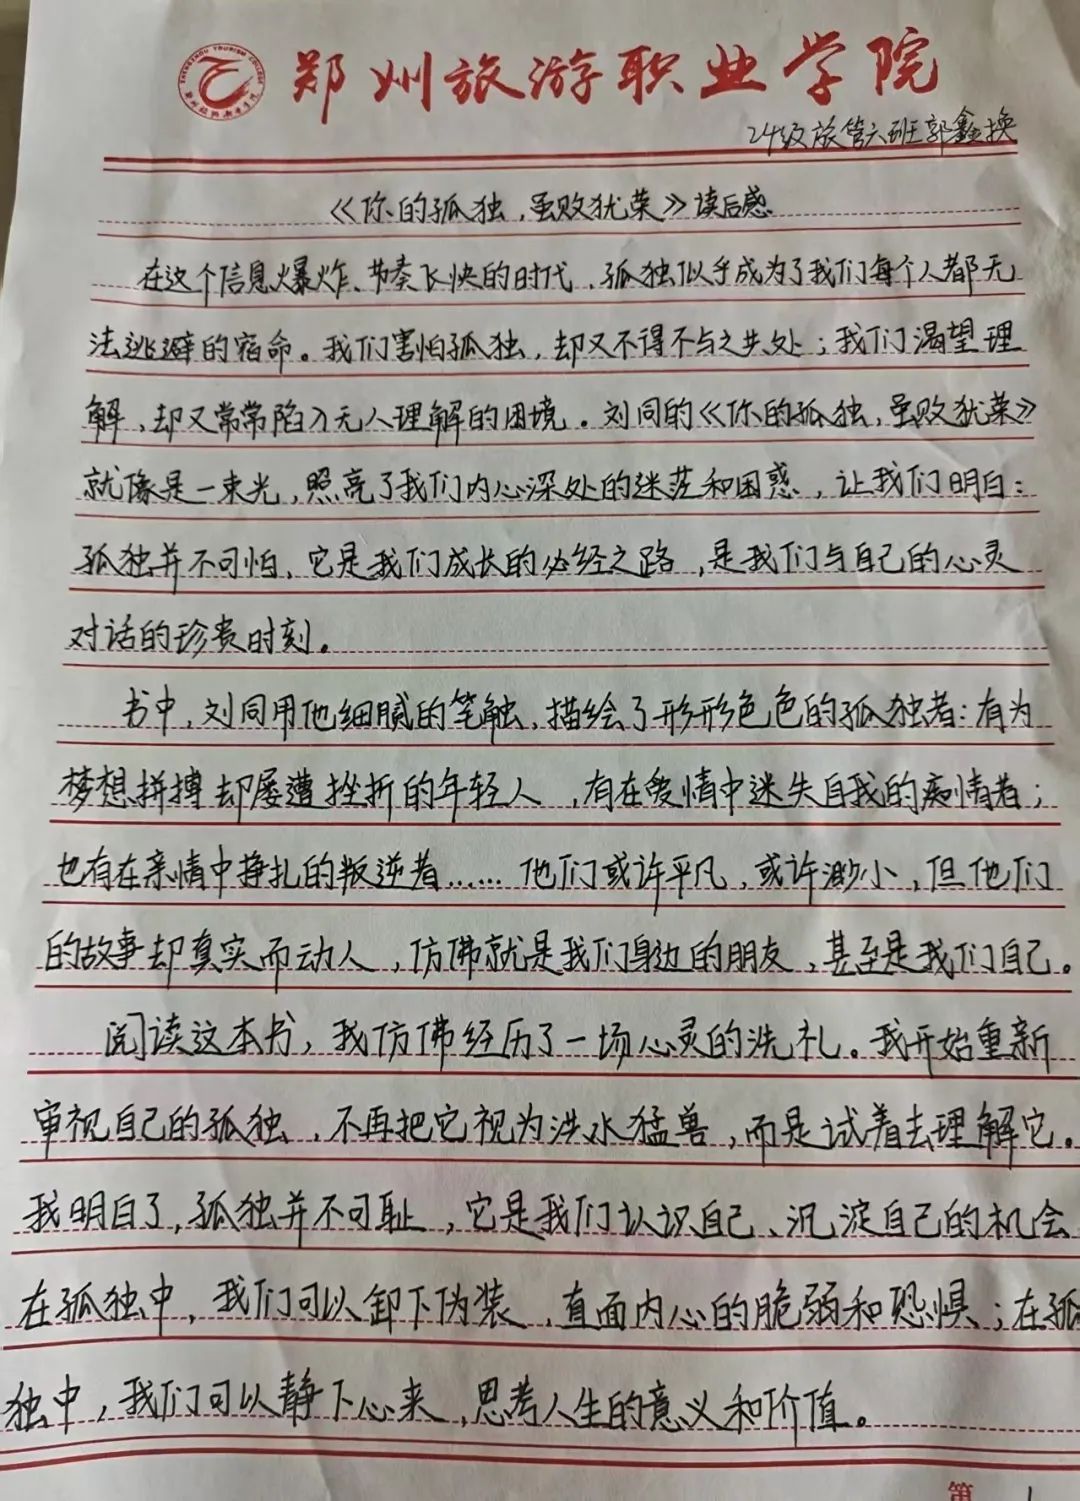 ZHENGZHOU TOURISM COLLEGE
郑州旅游职业学院
24级旅管六班郭鑫换
《你的孤独,虽败犹荣》读后感
在这个信息爆炸、节奏飞快的时代,孤独似乎成为了我们每个人都无
法逃避的宿命。我们害怕孤独,却又不得不与之共处;我们渴望理
解,却又常常陷入无人理解的困境。刘同的《你的孤独,虽败犹荣》
就像是一束光,照亮了我们内心深处的迷茫和困惑,让我们明白:
孤独并不可怕,它是我们成长的必经之路,是我们与自己的心灵
对话的珍贵时刻。
书中,刘同用他细腻的笔触,描绘了形形色色的孤独者:有为
梦想拼搏却屡遭挫折的年轻人,有在爱情中迷失自我的痴情者;
也有在亲情中挣扎的叛逆者……他们或许平凡,或许渺小,但他们
的故事却真实而动人,仿佛就是我们身边的朋友,甚至是我们自己。
阅读这本书,我仿佛经历了一场心灵的洗礼。我开始重新
审视自己的孤独,不再把它视为洪水猛兽,而是试着去理解它。
我明白了,孤独并不可耻,它是我们认识自己、沉淀自己的机会
在孤独中,我们可以卸下伪装,直面内心的脆弱和恐惧;在孤
独中,我们可以静下心来,思考人生的意义和价值。
第 1